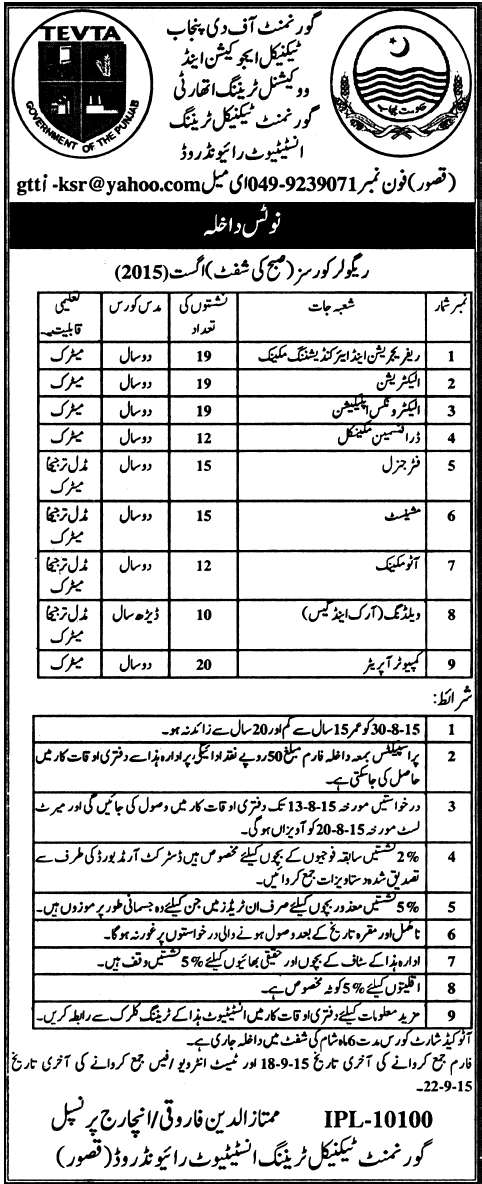 TEVTA
GOVERNMENT OF THE PUNJAB
گورنمنٹ آف دی پنجاب
ٹیکنیکل ایجوکیشن اینڈ
ووکیشنل ٹریننگ اتھارٹی
گورنمنٹ ٹیکنیکل ٹریننگ
انسٹیٹیوٹ رائیونڈ روڈ
حکومت پنجاب
(قصور) فون نمبر 049-9239071 ای میل gtti -ksr@yahoo.com
نوٹس داخلہ
ریگولر کورسز (صبح کی شفٹ) اگست (2015)
نمبر شمار شعبہ جات نشستوں کی تعداد مدت کورس تعلیمی قابلیت
1 ریفریجریشن اینڈ ایئر کنڈیشننگ مکینک 19 دو سال میٹرک
2 الیکٹریشن 19 دو سال میٹرک
3 الیکٹرونکس اپلیکیشن 19 دو سال میٹرک
4 ڈرافٹسمین مکینیکل 12 دو سال میٹرک
5 فٹر جنرل 15 دو سال مڈل ترجیحا میٹرک
6 مشینسٹ 15 دو سال مڈل ترجیحا میٹرک
7 آٹو مکینک 12 دو سال مڈل ترجیحا میٹرک
8 ویلڈنگ (آرک اینڈ گیس) 10 ڈیڑھ سال مڈل ترجیحا میٹرک
9 کمپیوٹر آپریٹر 20 دو سال میٹرک
شرائط:
1 30-8-15 کو عمر 15 سال سے کم اور 20 سال سے زائد نہ ہو۔
2 پراسپیکٹس بمعہ داخلہ فارم مبلغ 50 روپے نقد ادائیگی پر ادارہ ہذا سے دفتری اوقات کار میں
حاصل کی جا سکتی ہے۔
3 درخواستیں مورخہ 13-8-15 تک دفتری اوقات کار میں وصول کی جائیں گی اور میرٹ
لسٹ مورخہ 20-8-15 کو آویزاں ہو گی۔
4 2% نشستیں سابقہ فوجیوں کے بچوں کیلئے مخصوص ہیں ڈسٹرکٹ آرمڈ بورڈ کی طرف سے
تصدیق شدہ دستاویزات جمع کروائیں۔
5 5% نشستیں معذور بچوں کیلئے صرف ان ٹریڈز میں جن کیلئے وہ جسمانی طور پر موزوں ہیں۔
6 نامکمل اور مقررہ تاریخ کے بعد وصول ہونے والی درخواستوں پر غور نہ ہو گا۔
7 ادارہ ہذا کے سٹاف کے بچوں اور حقیقی بھائیوں کیلئے 5% نشستیں وقف ہیں۔
8 اقلیتوں کیلئے 5% کوٹہ مخصوص ہے۔
9 مزید معلومات کیلئے دفتری اوقات کار میں انسٹیٹیوٹ ہذا کے ٹریننگ کلرک سے رابطہ کریں۔
آٹو کیڈ شارٹ کورس مدت 6 ماہ شام کی شفٹ میں داخلہ جاری ہے۔
فارم جمع کروانے کی آخری تاریخ 18-9-15 اور ٹیسٹ انٹرویو/فیس جمع کروانے کی آخری تاریخ
22-9-15۔
IPL-10100 ممتاز الدین فاروقی/انچارج پرنسپل
گورنمنٹ ٹیکنیکل ٹریننگ انسٹیٹیوٹ رائیونڈ روڈ (قصور)